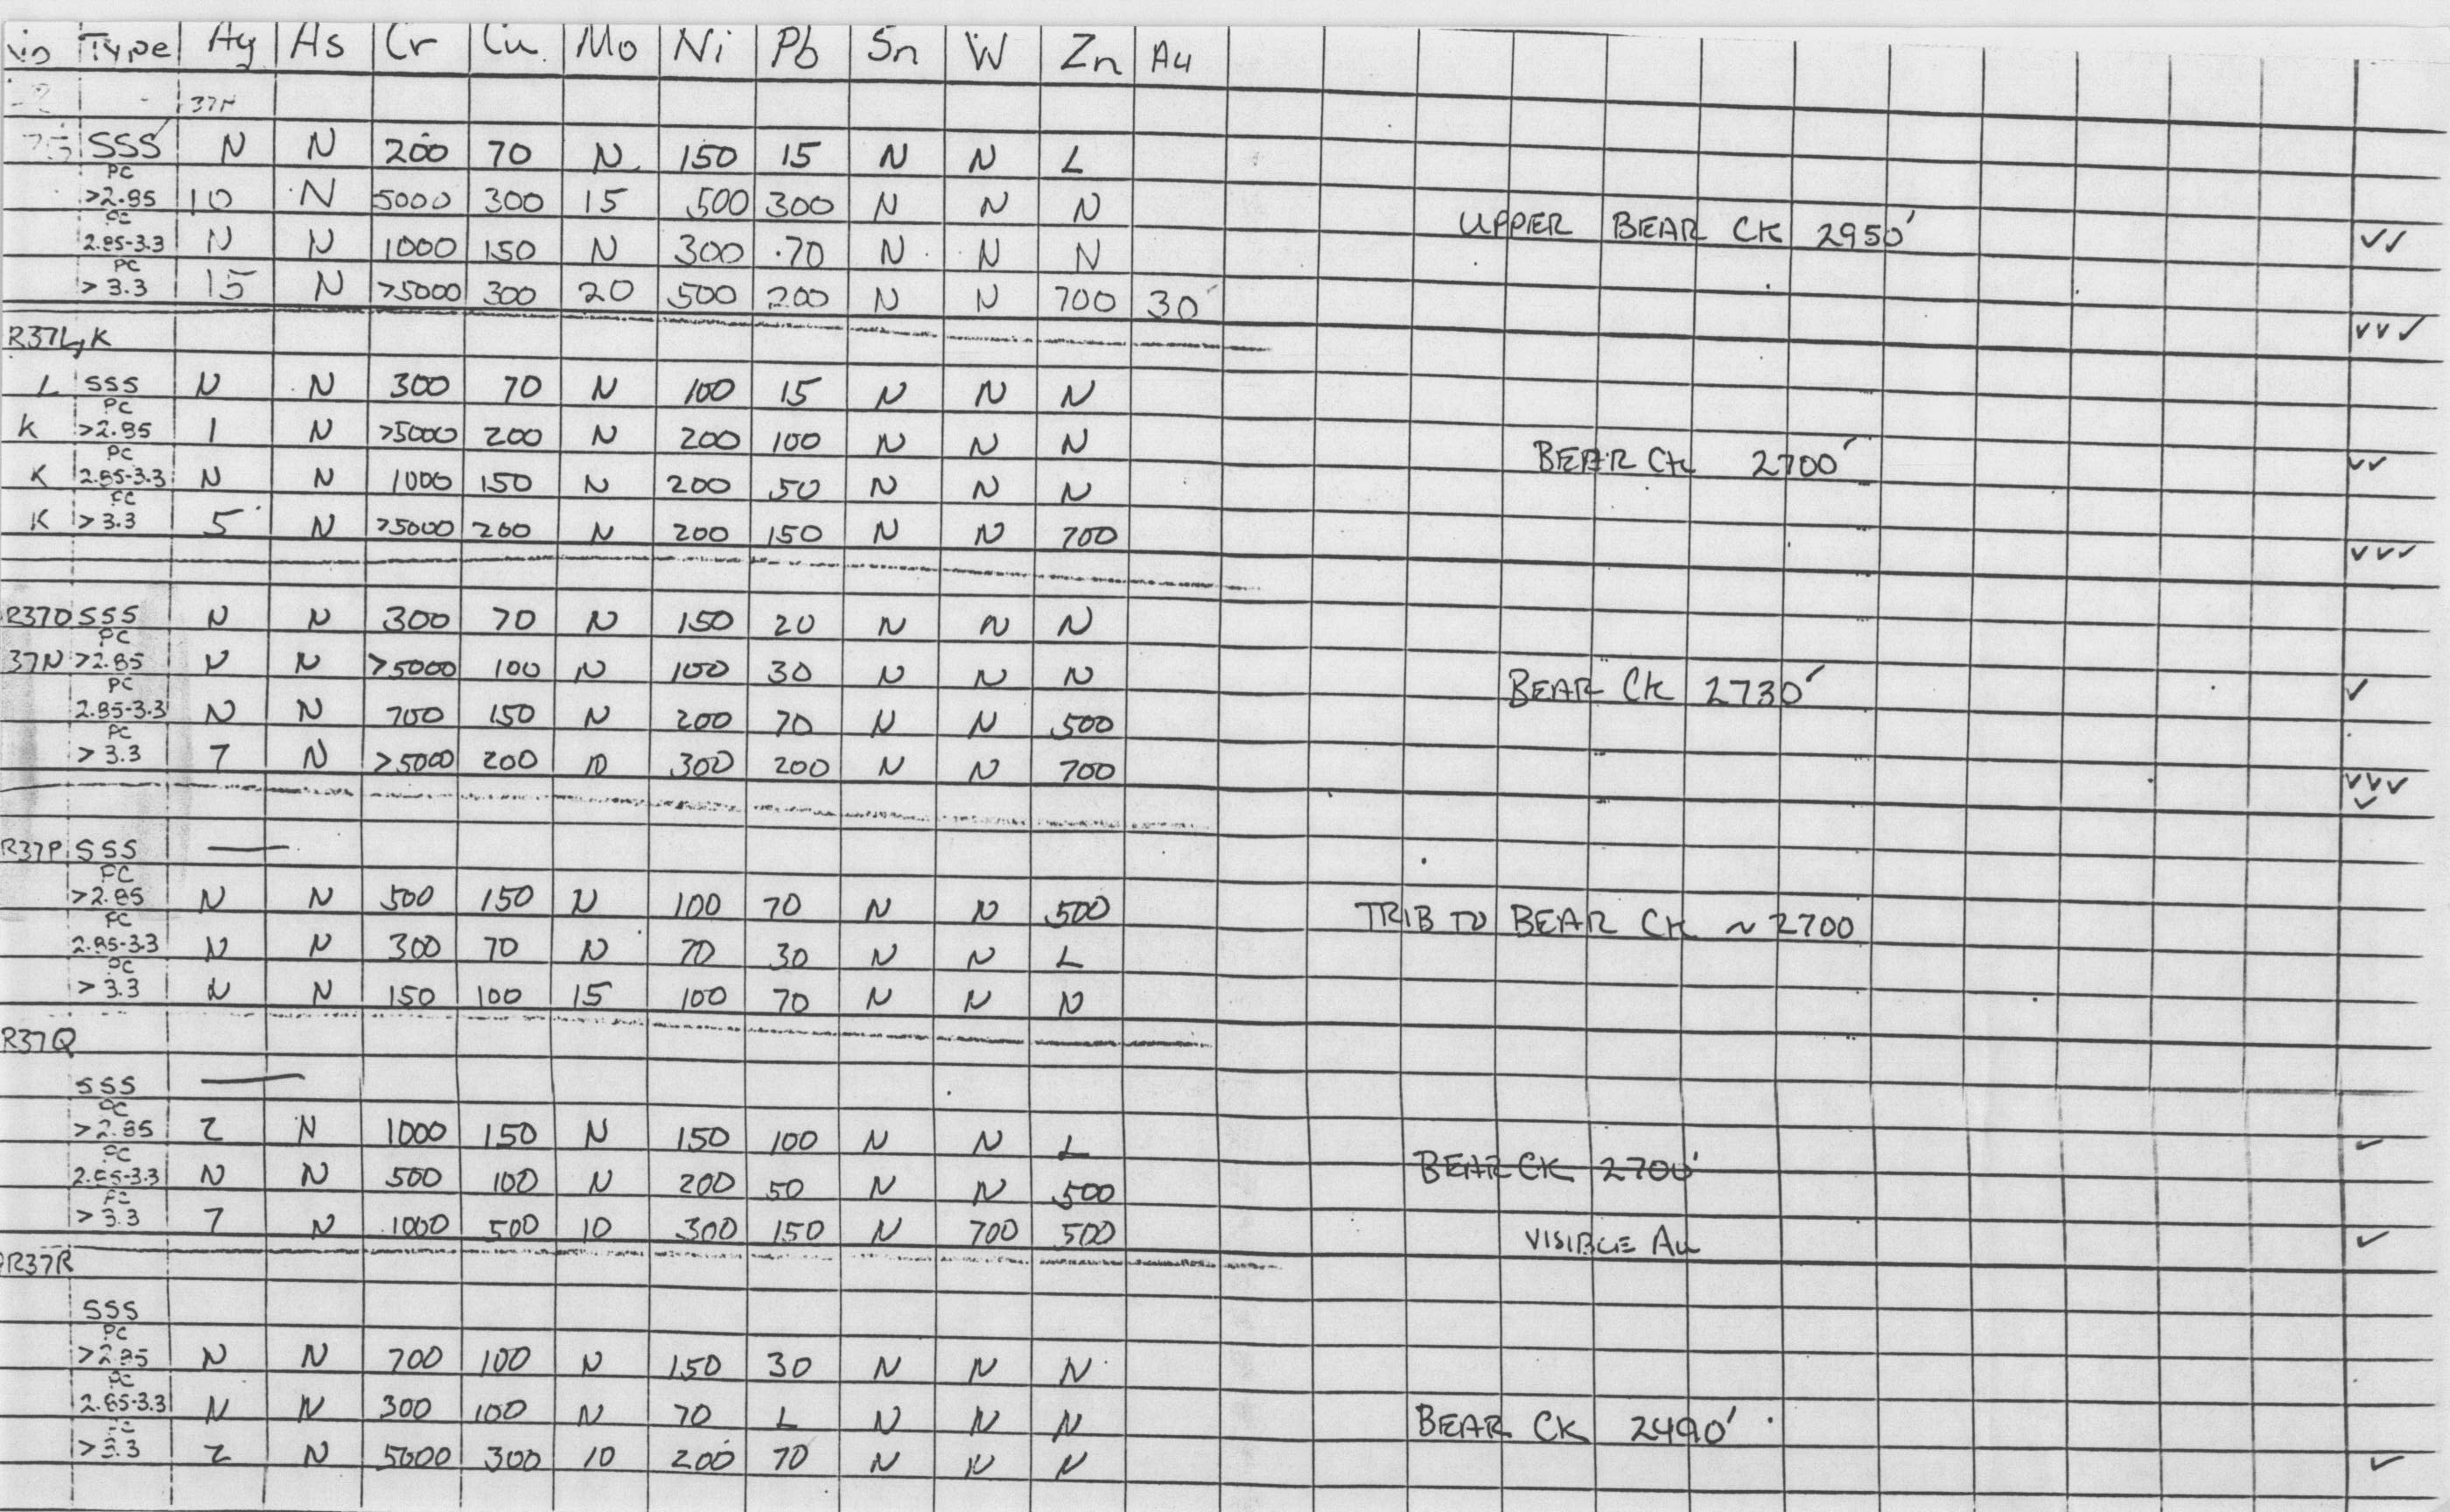 No Type Ag As Cr Cu Mo Ni Pb Sn W Zn Au
37N
SSS N N 200 70 N 150 15 N N L
PC
>2.85 10 N 5000 300 15 500 300 N N N
UPPER BEAR CK 2950' ✓✓
PC
2.85-3.3 N N 1000 150 N 300 70 N N N
PC
>3.3 15 N >5000 300 20 500 200 N N 700 30
✓✓✓
R37L,K
L SSS N N 300 70 N 100 15 N N N
PC
K >2.85 1 N >5000 200 N 200 100 N N N
BEAR CK 2700' ✓✓
PC
K 2.85-3.3 N N 1000 150 N 200 50 N N N
PC
K >3.3 5 N >5000 200 N 200 150 N N 700
✓✓✓
R37O SSS N N 300 70 N 150 20 N N N
PC
37N >2.85 N N >5000 100 N 100 30 N N N
BEAR CK 2730' ✓
PC
2.85-3.3 N N 700 150 N 200 70 N N 500
PC
>3.3 7 N >5000 200 10 300 200 N N 700
✓✓✓
✓
R37P SSS —
PC
>2.85 N N 500 150 N 100 70 N N 500
TRIB TO BEAR CK ~2700
PC
2.85-3.3 N N 300 70 N 70 30 N N L
PC
>3.3 N N 150 100 15 100 70 N N N
R37Q
SSS —
PC
>2.85 2 N 1000 150 N 150 100 N N L
✓
BEAR CK 2700'
PC
2.85-3.3 N N 500 100 N 200 50 N N 500
PC
>3.3 7 N 1000 500 10 300 150 N 700 500
VISIBLE Au ✓
R37R
SSS
PC
>2.85 N N 700 100 N 150 30 N N N
PC
2.85-3.3 N N 300 100 N 70 L N N N
BEAR CK 2490'
PC
>3.3 2 N 5000 300 10 200 70 N N N
✓